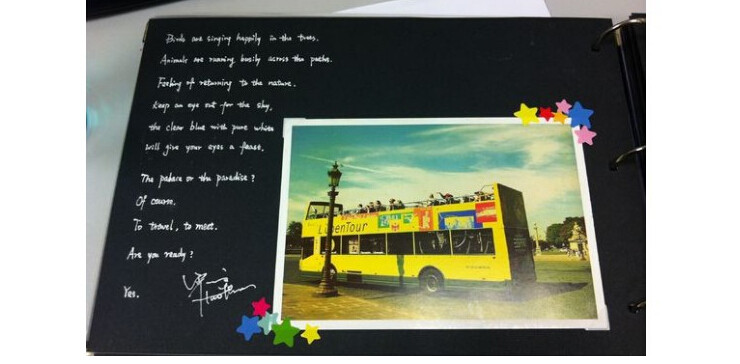 Birds are singing happily in the trees.
Animals are running busily across the paths.
Feeling of returning to the nature.
Keep an eye out for the sky,
the clear blue with pure white
will give your eyes a feast.
The palace or the paradise?
Of course.
To travel, to meet.
Are you ready?
Yes.
L'OpenTour